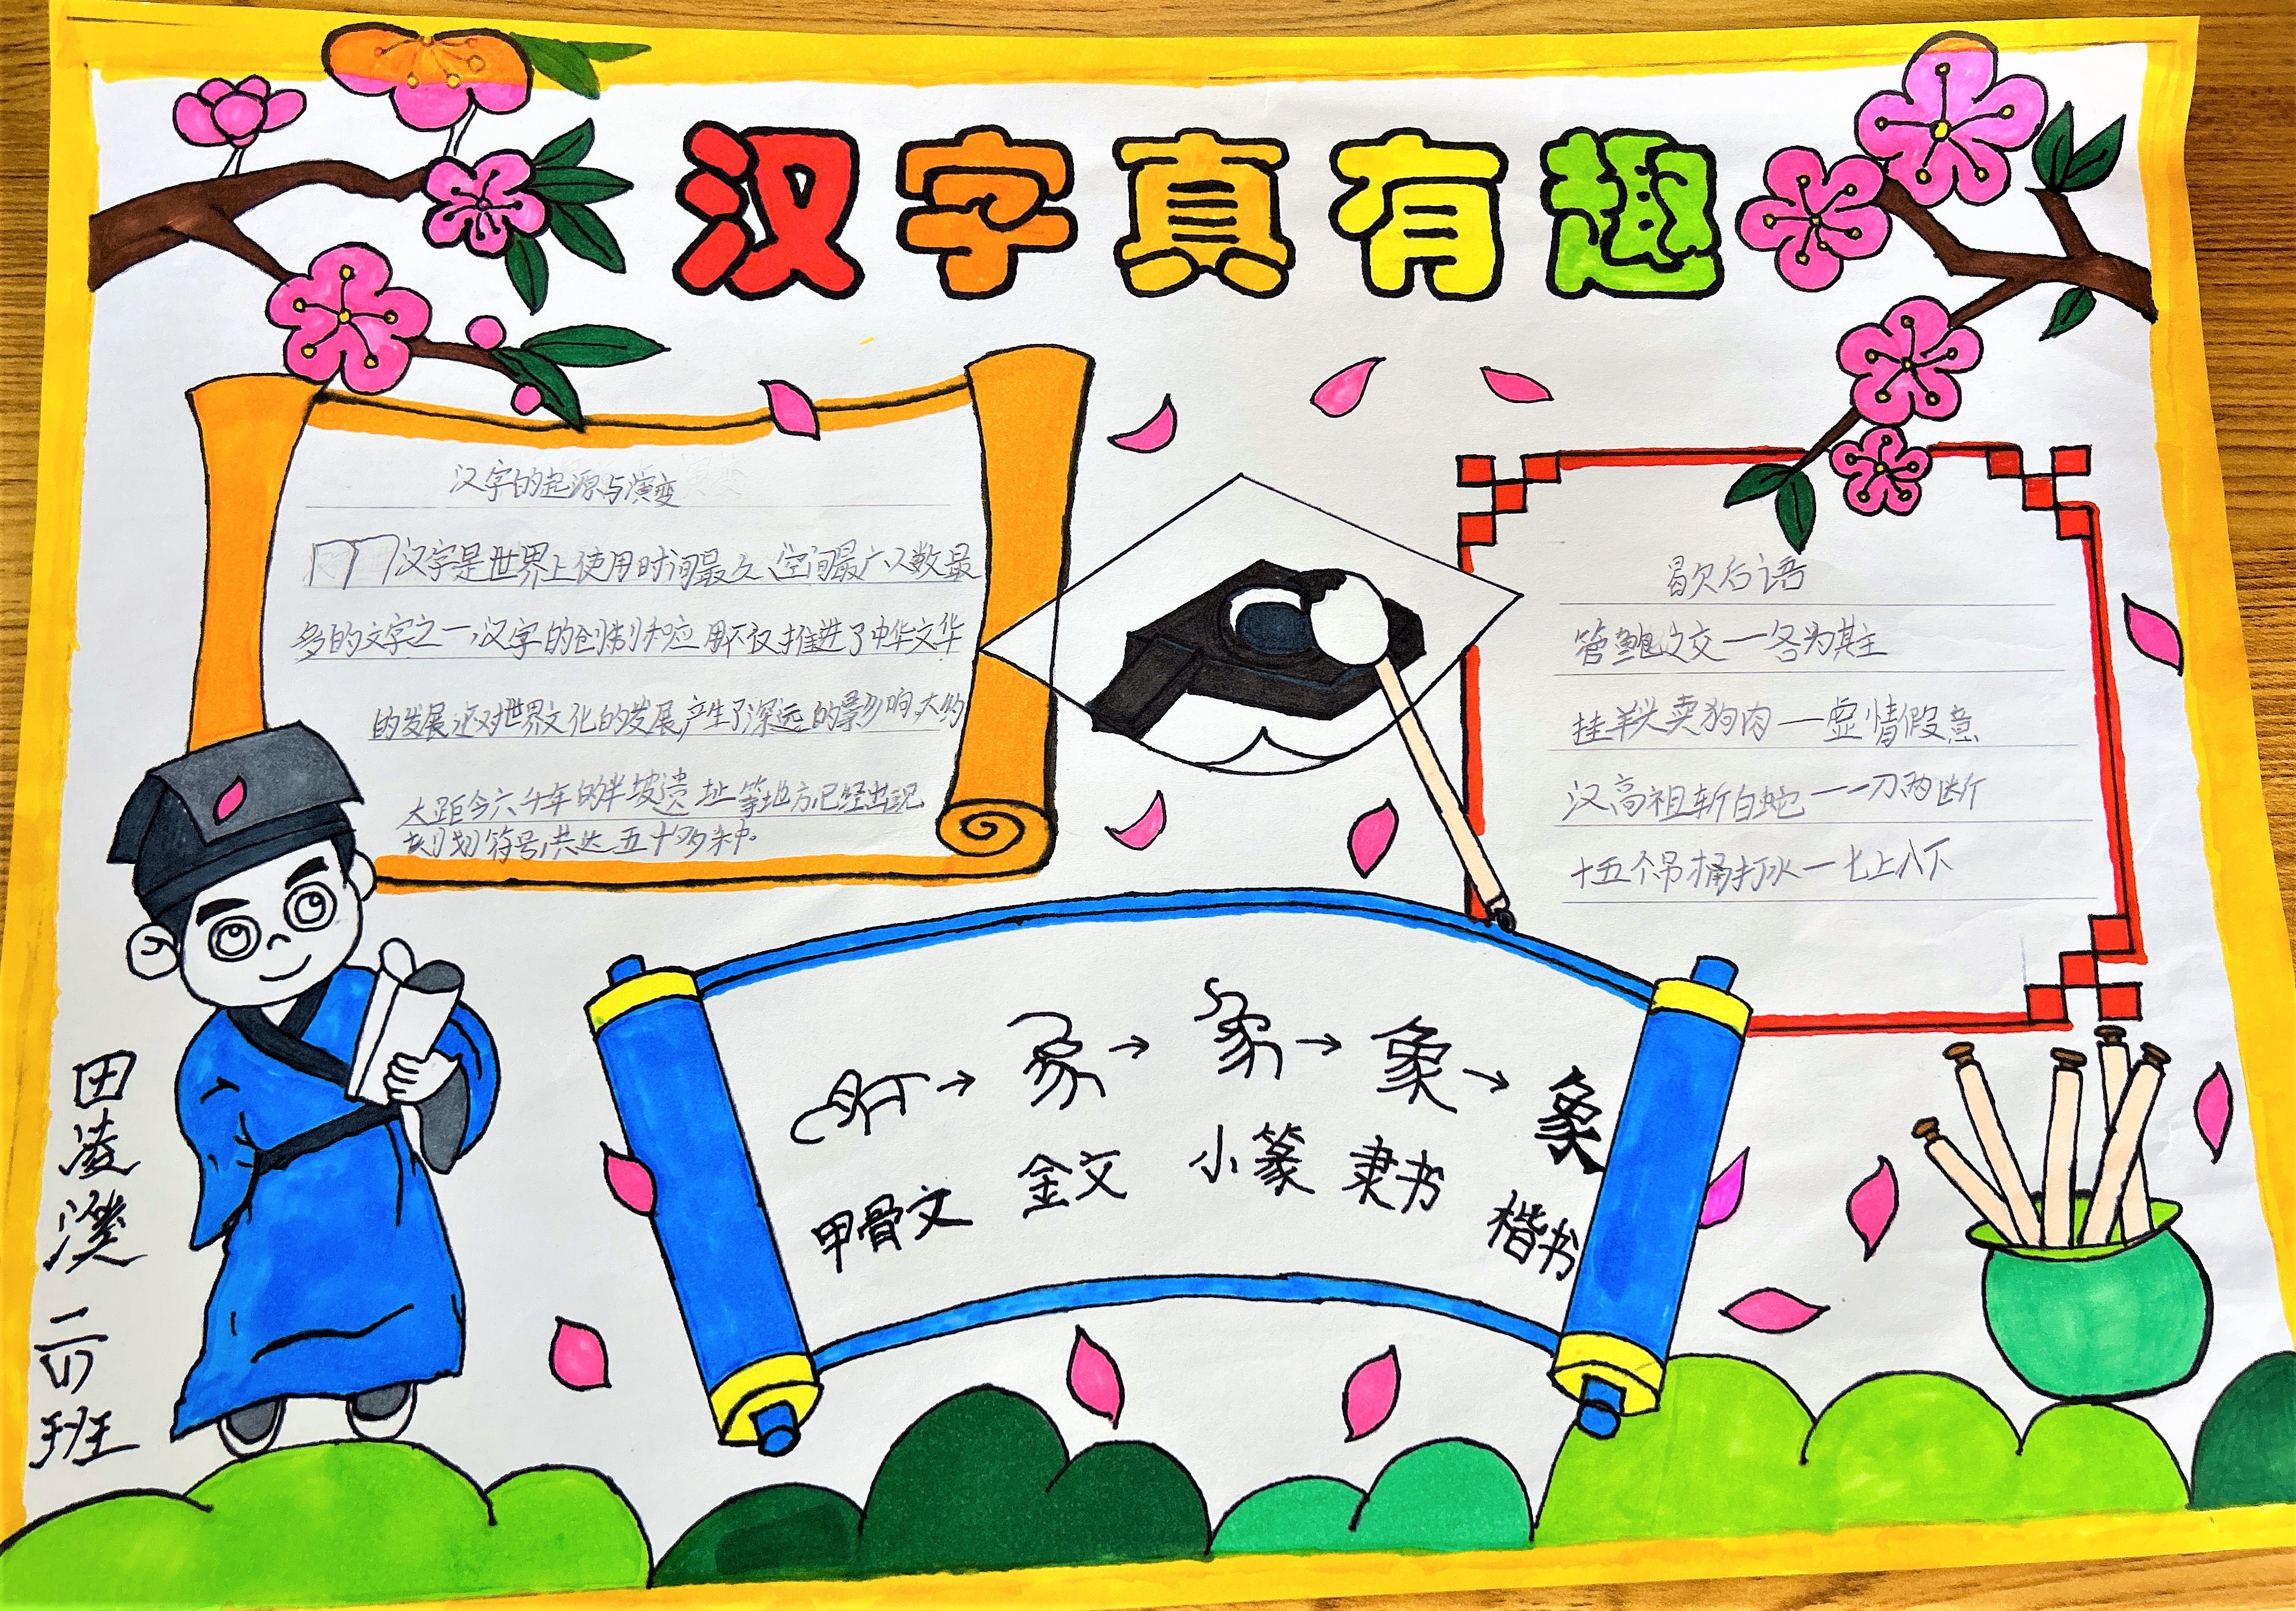 汉字真有趣
汉字的起源与演变
汉字是世界上使用时间最久、空间最广人数最
多的文字之一,汉字的创制和应用不仅推进了中华文华
的发展还对世界文化的发展产生了深远的影响,大约
大距今六千年的半坡遗址等地方已经出现
刻划符号,共达五十多种。
歇后语
管鲍之交一各为其主
挂羊头卖狗肉一虚情假意
汉高祖斩白蛇一一刀两断
十五个吊桶打水一七上八下
象→象→象
甲骨文 金文 小篆 隶书 楷书
田凌濮
班